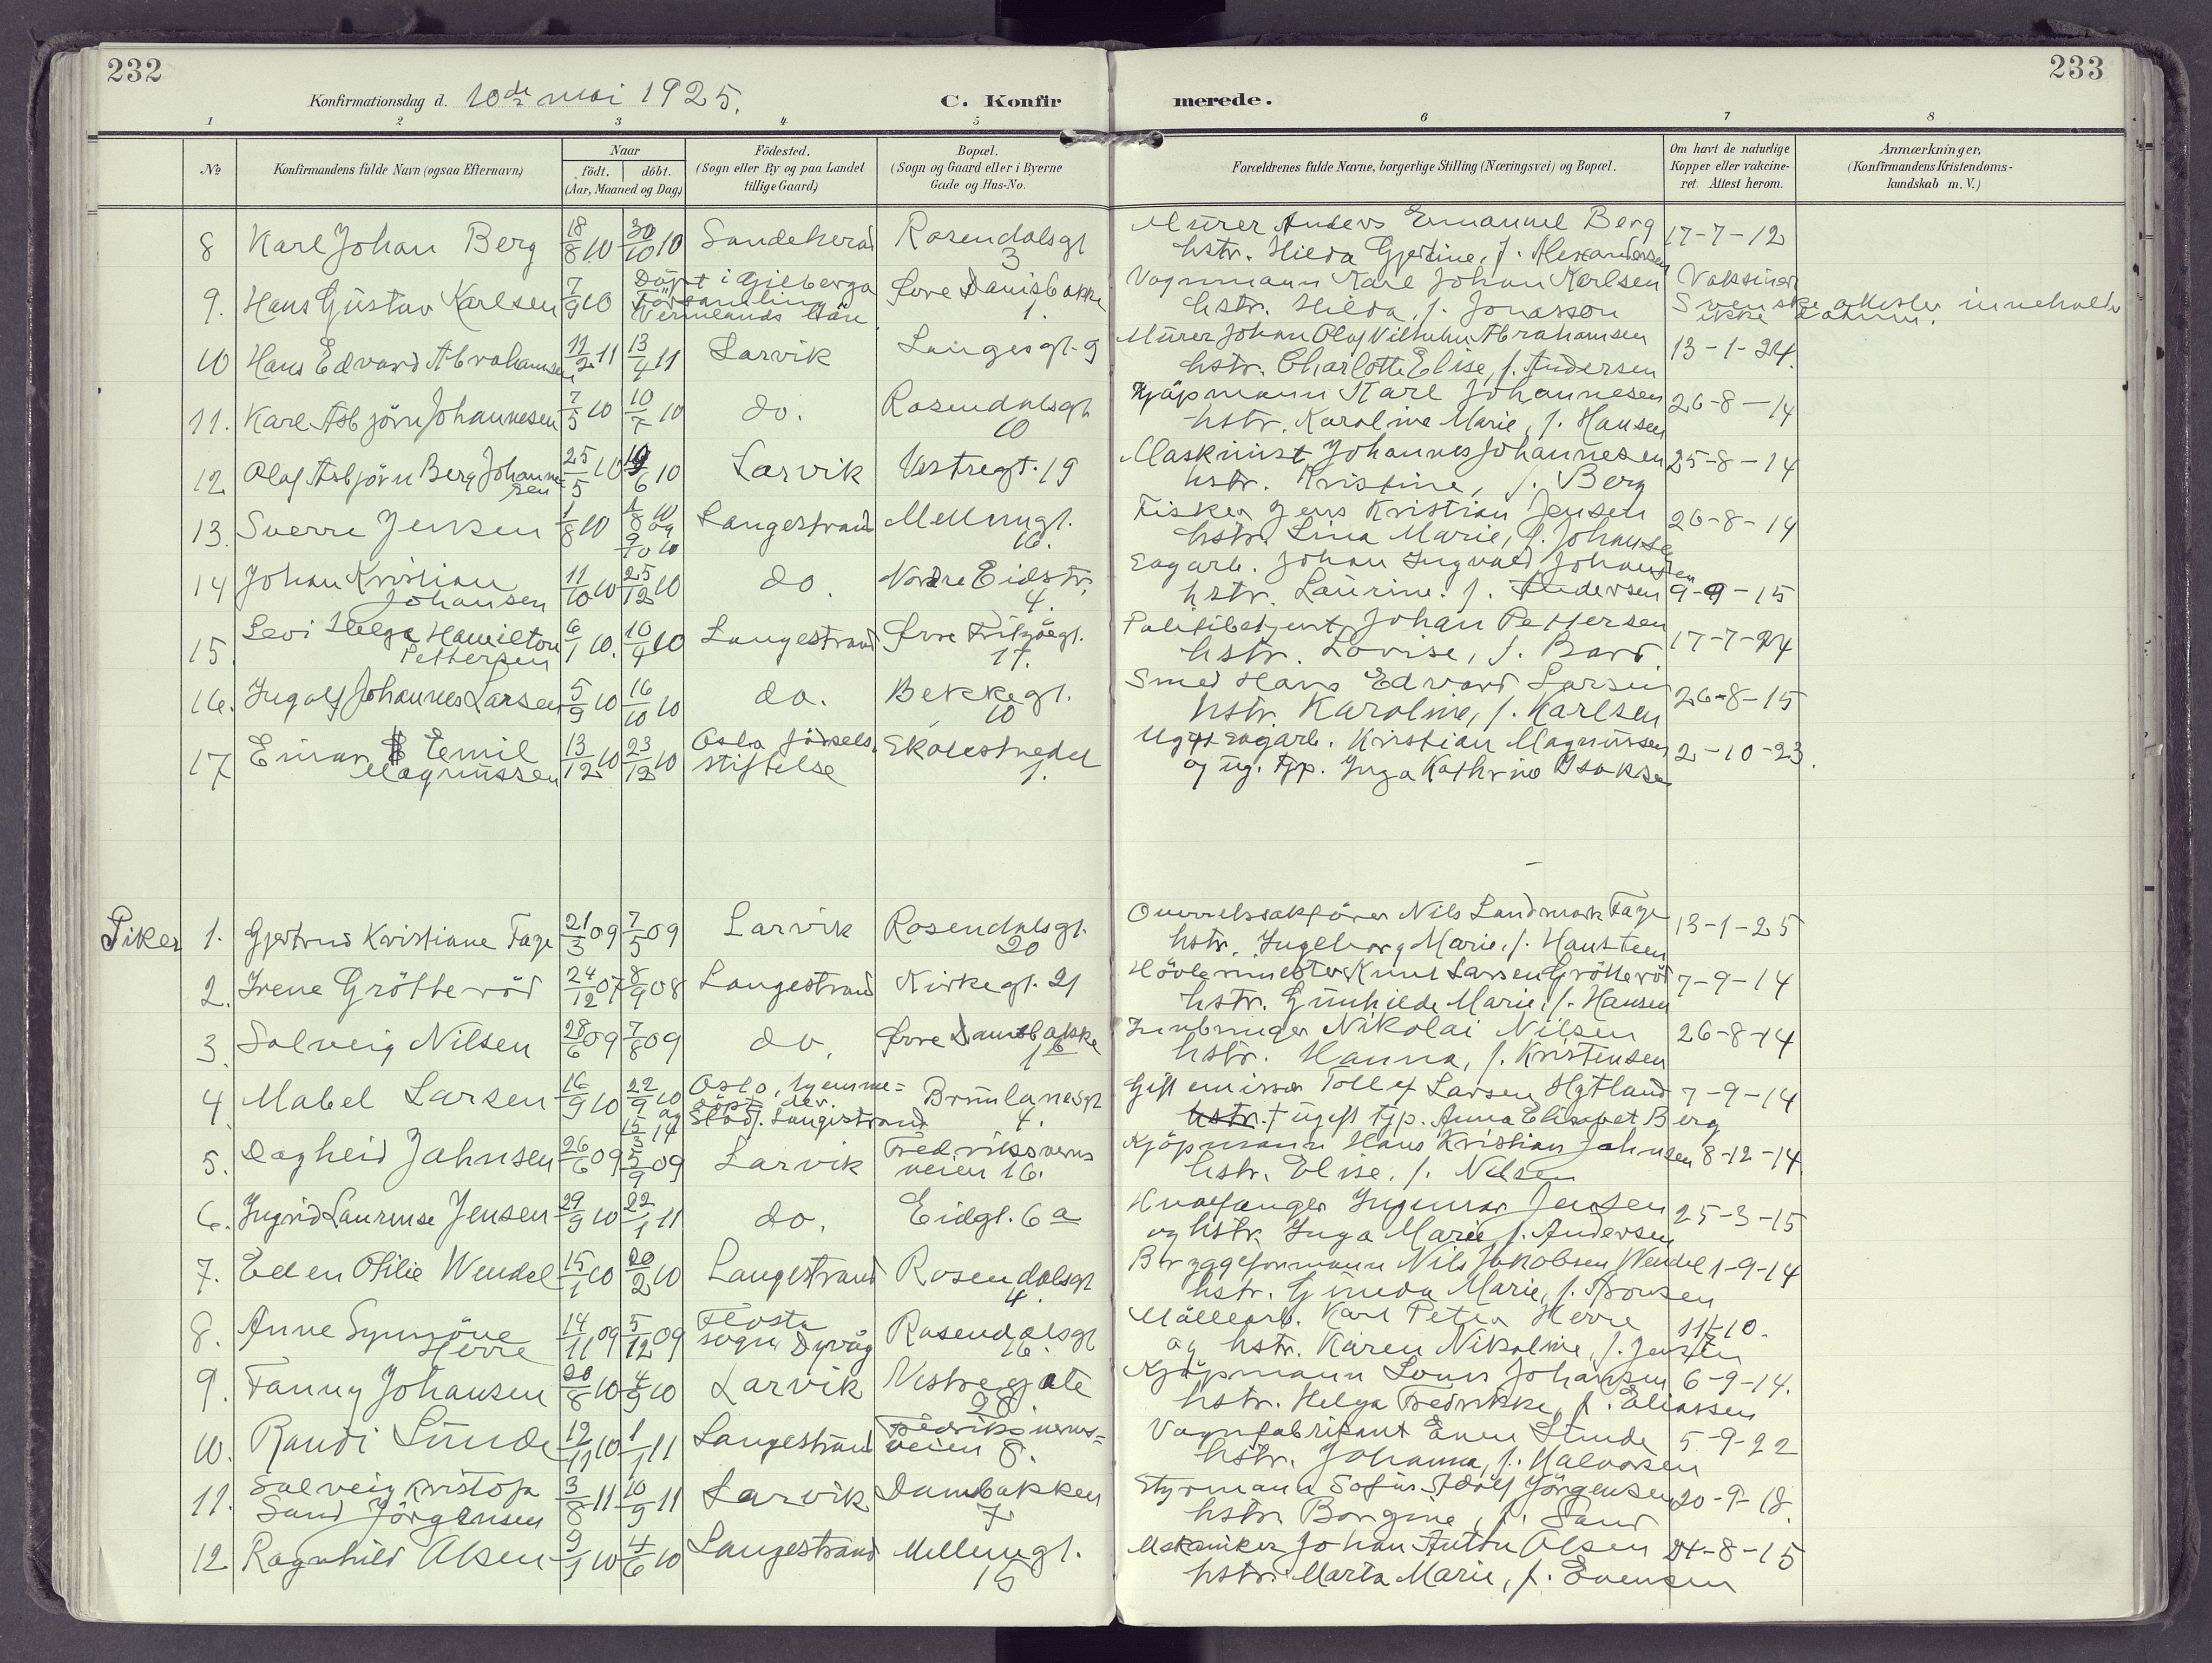 232
233
Konfirmationsdag d. 10de mai 1925.
C. Konfirmerede.
1 2 3 4 5 6 7 8
No
Konfirmandens fulde Navn (ogsaa Efternavn)
Naar
födt. döbt.
(Aar, Maaned og Dag)
Födested.
(Sogn eller By og paa Landet
tillige Gaard)
Bopæl.
(Sogn og Gaard eller i Byerne
Gade og Hus-No.
Forældrenes fulde Navne, borgerlige Stilling (Næringsvei) og Bopæl.
Om havt de naturlige
Kopper eller vakcine-
ret Attest herom.
Anmærkninger,
(Konfirmandens Kristendoms-
kundskab m. V.)
8 Karl Johan Berg 18/8 10 30/10 10 Sandeherad Rosendalsgt 3 Murer Anders Emanuel Berg 17-7-12
hstr. Hilda Gjertine, f. Alexandersen
9. Hans Gustav Karlsen 7/9 10 Döpt i Gilberga Församling Vermlands län Øvre Damsbakke 1. Vognmann Karl Johan Karlsen Vaksiner
hstr. Hilda, f. Jonasson Svenske attester inneholder ikke datum.
10 Hans Edvard Abrahamsen 11/2 11 13/4 11 Larvik Langesgt. 9 Murer Johan Olaf Vilhelm Abrahamsen 13-1-24.
hstr. Charlotte Elise, f. Andersen
11. Karl Asbjörn Johannesen 7/5 10 10/7 10 do. Rosendalsgt 10 Kjöpmann Karl Johannesen 26-8-14
hstr. Karoline Marie, f. Hansen
12 Olaf Asbjörn Berg Johannesen 25/5 10 19/6 10 Larvik Vestregt. 19 Maskinist Johannes Johannesen 25-8-14
hstr. Kristine, f. Berg
13. Sverre Jensen 1/8 10 1/8 10 og 9/10 10 Langestrand Mellemgt. 16. Fisker Jens Kristian Jensen 26-8-14
hstr. Lina Marie, f. Johansen
14 Johan Kristian Johansen 11/10 10 25/12 10 do. Nordre Eidstr. 4. Sagarb. Johan Ingvald Johansen 9-9-15
hstr. Laurine. f. Andersen
15. Levi Helge Hamilton Pettersen 6/1 10. 10/4 10 Langestrand Øvre Fritzöegt. 17. Politibetjent Johan Pettersen 17-7-24
hstr. Lovise, f. Bard.
16. Ingolf Johannes Larsen 5/9 10 16/10 10 do. Bekkegt. 10 Smed Hans Edvard Larsen 26-8-15
hstr. Karoline, f. Karlsen
17 Einar Emil Magnussen 13/12 10 23/12 10 Oslo födselsstiftelse Skolestredet 1. Ugift sagarb. Kristian Magnussen 2-10-23.
og ug. tjp. Inga Kathrine Isaksen
Piker
1. Gjertrud Kristiane Fage 21/3 09 7/5 09 Larvik Rosendalsgt. 20 Overretssakförer Nils Landmark Fage 13-1-25
hstr. Ingeborg Marie, f. Hansteen
2. Irene Grötteröd 24/12 07 8/9 08 Langestrand Kirkegt. 21 Hövlermester Knut Larsen Grötteröd 7-9-14
hstr. Gunhilde Marie, f. Hansen
3. Solveig Nilsen 28/6 09 7/8 09 do. Øvre Damsbakke 1 b Nikolai Nilsen 26-8-14
hstr. Hanna, f. Kristensen
4. Mabel Larsen 16/9 10 22/9 10 og 15/3 14 Oslo, hjemmedöpt der. Stadf. Langestrand Brunlanesgt 4. Gift emissær Tollef Larsen Hytland 7-9-14
hstr. + ugift tjp. Anna Elisabet Berg
5. Dagheid Jahnsen 26/6 09 5/9 09 Larvik Fredriksvernsveien 16. Kjöpmann Hans Kristian Jahnsen 8-12-14
hstr. Elise. f. Nilsen
6. Ingrid Laurense Jensen 29/9 10 22/1 11 do. Eidgt. 6 a Hvalfanger Ingmar Jensen 25-3-15
og hstr. Inga Marie f. Andersen
7. Ellen Otilie Wendel 15/1 10 20/2 10 Langestrand Rosendalsgt 4. Bryggeformann Nils Jakobsen Wendel 1-9-14
hstr. Gunda Marie, f.
8. Anne Synnöve Herre 14/11 09 5/12 09 Flosta sogn Dyvåg Rosendalsgt 16. Möllearb. Karl Peter Herre 11/7-10.
og hstr. Karen Nikoline, f. Jensen
9. Fanny Johansen 20/8 10 4/9 10 Larvik Vestregate 28. Kjöpmann Louis Johansen 6-9-14.
hstr. Helga Fredrikke, f. Eliassen
10. Randi Lunde 12/11 10 1/1 11 Langestrand Fredriksvernsveien 8. Vognfabrikant Even Lunde 5-9-22
hstr. Johanna, f. Halvorsen
11. Solveig Kristofa Sand Jörgensen 3/8 11 10/9 11 Larvik Dambakken 7. Styrmann Sofus Adolf Jörgensen 20-9-18.
hstr. Borgine, f. Sand
12 Ragnhild Olsen 9/1 10 4/6 10 Langestrand Mellemgt. 15 Mekaniker Johan Anton Olsen 24-8-15
hstr. Marta Marie, f. Evensen